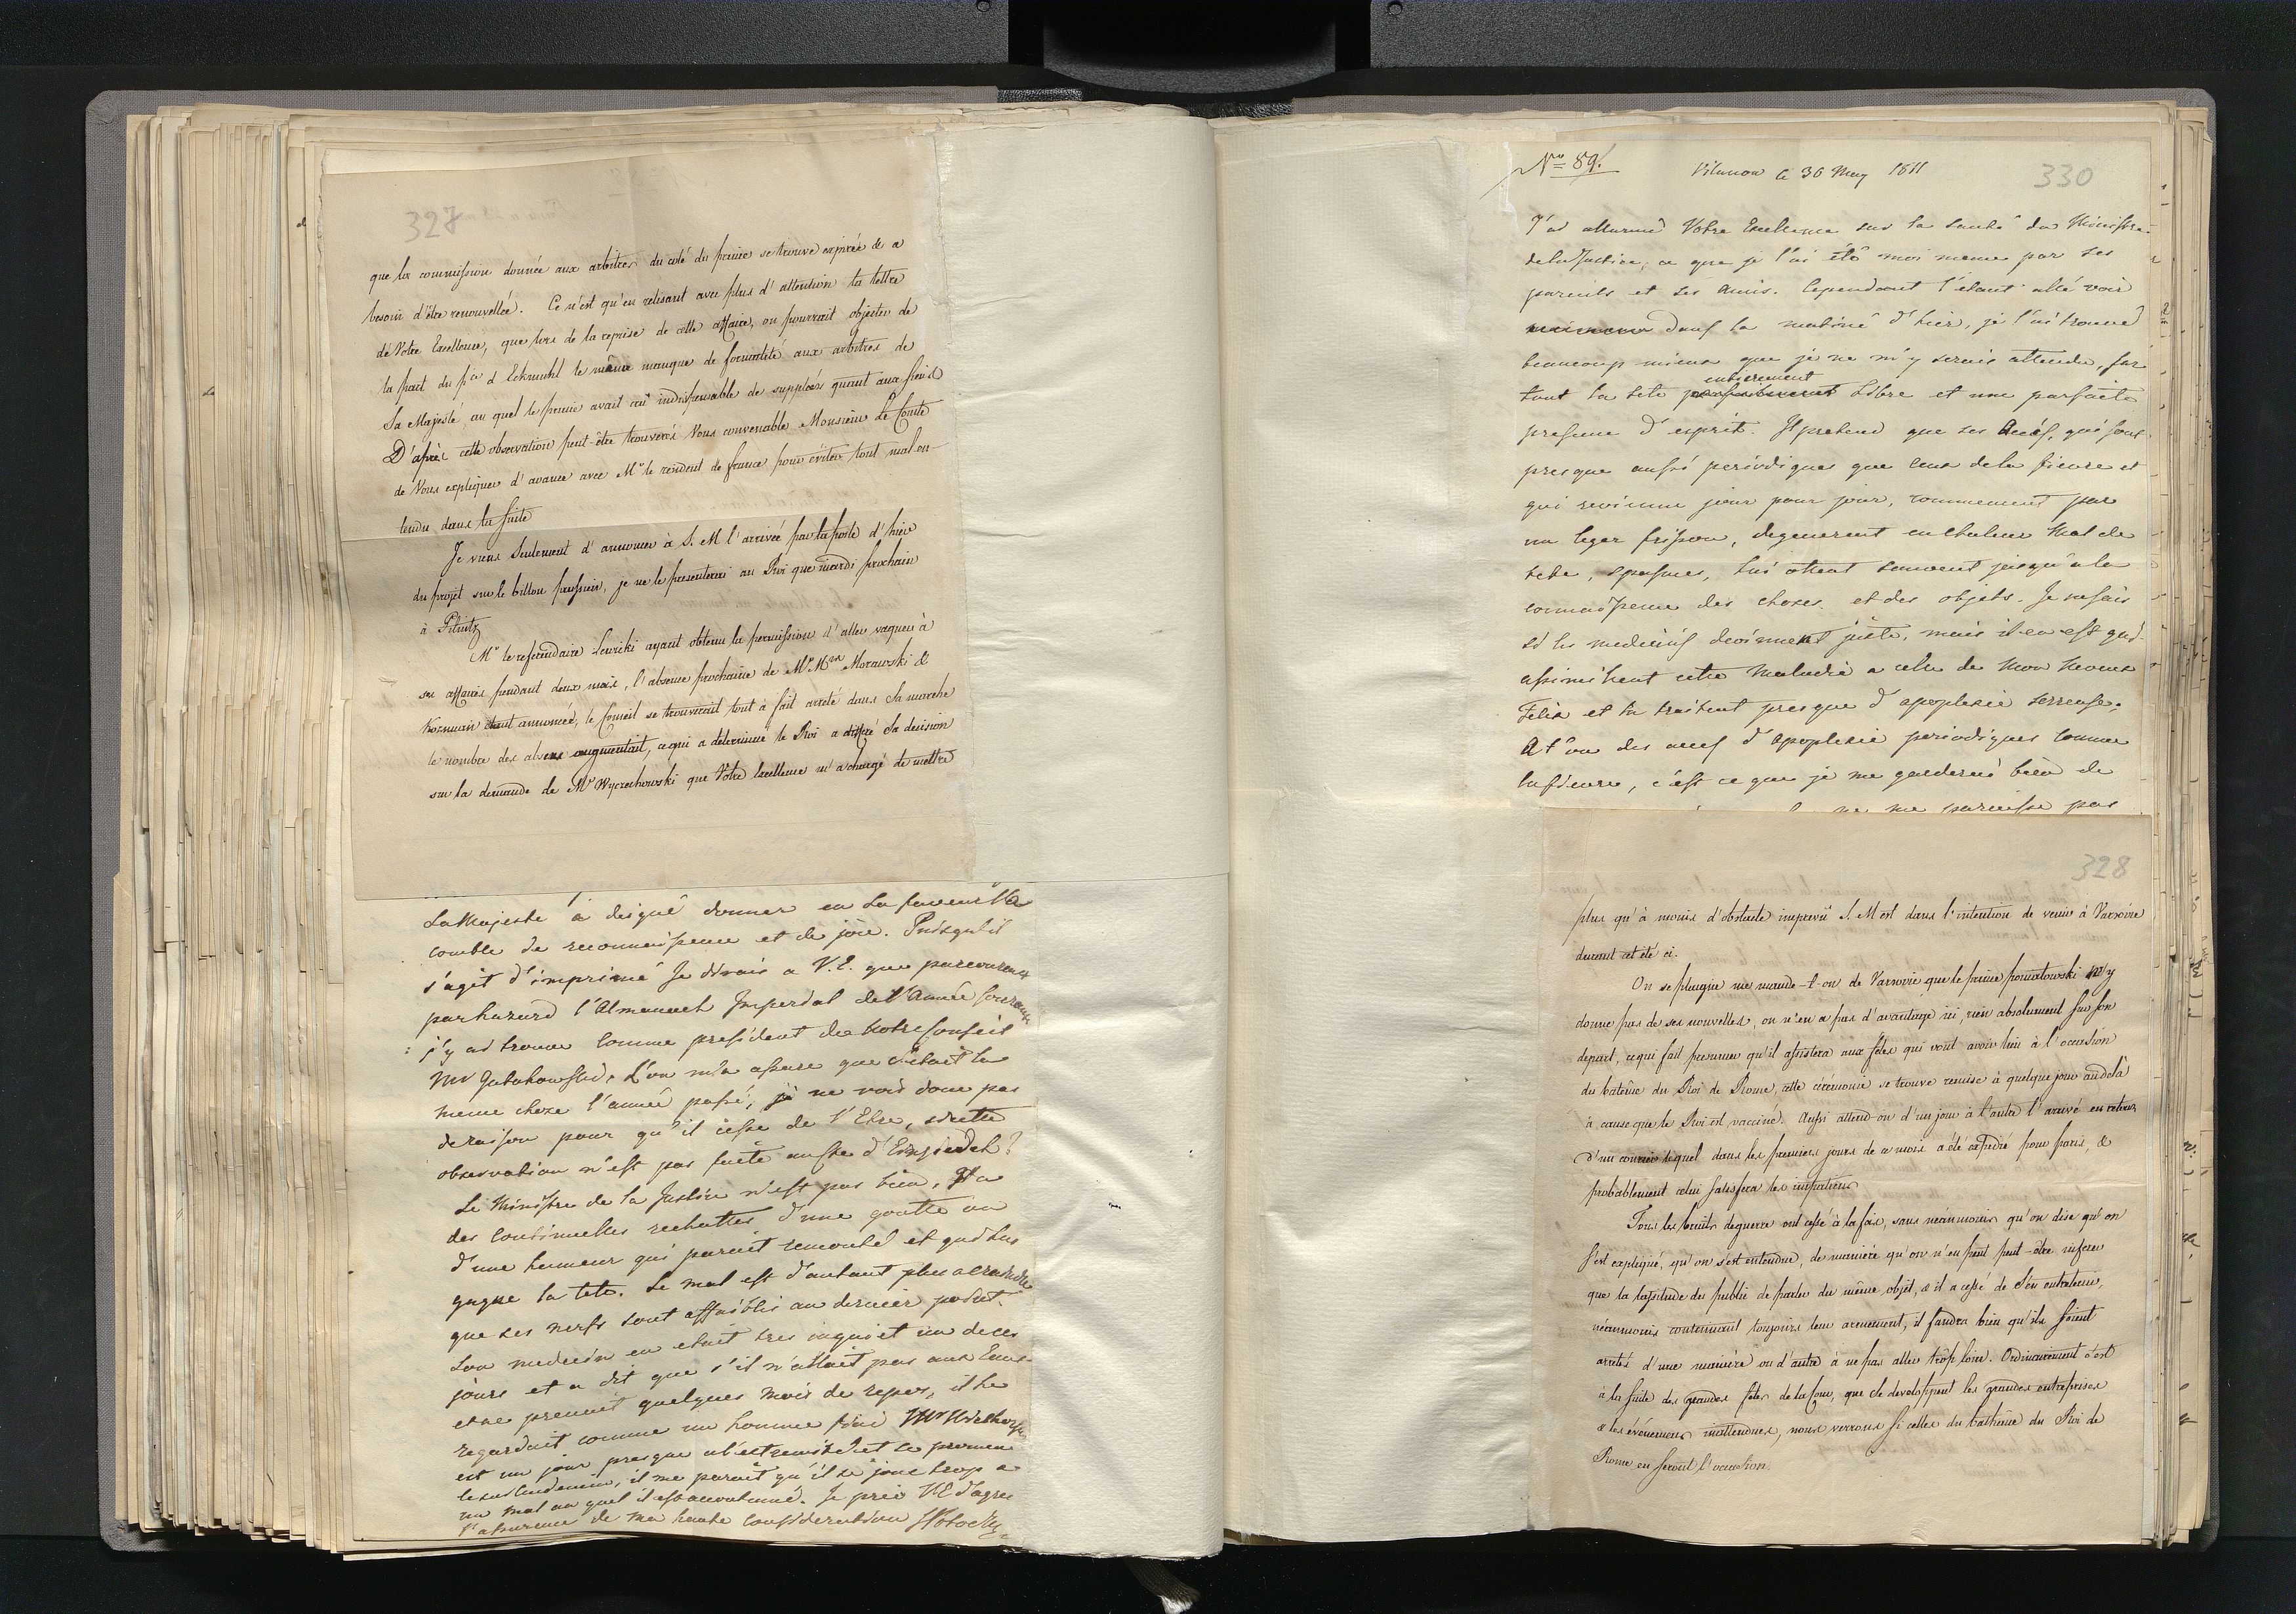 327
que la commission donnée aux arbitres du coté du prince se trouve expirée & a
besoin d'être renouvellée. Ce n'est qu'en relisant avec plus d'attention la lettre
de Votre Excellence, que lors de la reprise de cette affaire, on pourrait objecter de
la part du pce d'Eckmuhl le même manque de formalité aux arbitres de
Sa Majesté, au quel le prince avait crû indispensable de suppléer quant aux siens
D'après cette observation peut-être trouverés Vous convenable Monsieur Le Comte
de Vous expliquer d'avance avec Mr le resident de france pour éviter tout mal en-
tendu dans la suite
Je viens seulement d'annoncer à S. M l'arrivée par la poste d'hier
du projet sur le billon prussien, je ne le presenterai au Roi que mardi prochain
à Pilnitz
Mr le referendaire Lewiki ayant obtenu la permission d'aller vaquer à
ses affaires pendant deux mois, l'absence prochaine de Mrs Morawski &
étant annoncée, le Conseil se trouverait tout à fait arreté dans sa marche
le nombre des absens augmentait, ce qui a determiné le Roi a differé sa decision
sur la demande de Mr Wyczechowski que Votre Excellence m'a chargé de mettre
Sa Majesté a deigné donner en sa faveur l'a
comble de reconnaissance et de joie. Puisqu'il
s'agit d'imprimé Je dirais a V. E. que parcourant
par hazard l'Almanach Imperial de l'Année
j'y ai trouvé comme president de notre Conseil
Mr Gutakowski, L'on m'a assuré que c'etait la
meme chose l'année passé, je ne vois donc pas
de raison pour qu'il cesse de l'Etre,
observation n'est pas faite
Le Ministre de la Justice n'est pas bien, Il a
des continuelles rechuttes d'une goutte ou
d'une humeur qui parait remonté et qui lui
gagne la tete. Le mal est d'autant plus a craindre
que ses nerfs sont affaiblis au dernier point.
Son medecin en etait tres inquiet un de ces
jours et a dit que s'il n'allait pas aux Eaux
et ne prenait quelques mois de repos, il le
regardait comme un homme fini
est un jour presque et se promene
le sur lendemain, il me parait qu'il se joue trop a
un mal au quel il est accoutumé. Je prie V.E d'agreer
l'assurance de ma haute consideration
No 89.
330
Vilanow le 30 May 1811
J'ai allarmé Votre Excellence sur la santé du Ministre
de la Justice, ce que je l'ai été moi meme par ses
parents et ses Amis. Cependant l'étant allé voir
dans la matiné d'hier, je l'ai trouvé
beaucoup mieux que je ne m'y serais attendu, sur
entierement
tout la tete libre et une parfaite
presence d'esprit. Il pretend que ses accès, qui sont
presque aussi periodiques que ceux de la fievre et
qui revienne jour pour jour, commencent par
un leger frisson, degenerent en chaleur Mal de
tete, spasmes, lui otent souvent jusqu'a la
connaissance des choses et des objets. Je ne sais
si les medecins devinnent juste, mais il en est qui
assimilent cette maladie a celle de mon neveu
Felix et la traitent presque d'apoplexie serreuse.
A t'on des accès d'apoplexie periodiques comme
la fievre, c'est ce que je me garderai bien de
ne me paraisse pas
328
plus qu'à moins d'obstacle imprevû S. M est dans l'intention de venir à Varsovie
durant cet été ci.
On se plaigne me mande-t-on de Varsovie que le prince poniatowski n'y
donne pas de ses nouvelles, on n'en a pas d'avantage ici, rien absolument sur son
depart, ce qui fait presumer qu'il assistera aux fêtes qui vont avoir lieu à l'occasion
du batême du Roi de Rome, cette cérémonie se trouve remise à quelque jour audela
à cause que le Roi est vacciné. Aussi attend-on d'un jour à l'autre l'arrivé en retour
d'un courier lequel dans les premiers jours de ce mois a été expedié pour paris, &
probablement celui satisfera les impatiens
Tous les bruits de guerre ont cessé à la fois, sans néanmoins qu'on dise qu'on
s'est expliqué, qu'on s'est entendue, de manière qu'on n'en peut peut-être inferer
que la lassitude du public de parler du même objet, & il a cessé de s'en entretenir,
néanmoins continuant toujours leur armement, il faudra bien qu'ils soient
arretés d'une manière ou d'autre à ne pas aller trop loin. Ordinairement c'est
à la suite des grandes fêtes de la Cour, que se developpent les grandes entreprises
& les événemens inattendues, nous verrons si celles du bathême du Roi de
Rome en seront l'occasion.